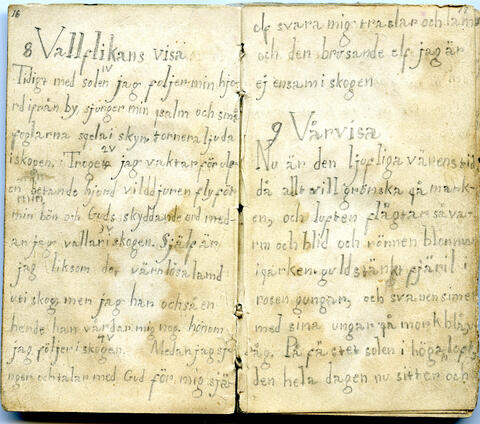 16
8 Vallflikans visa
1V
Tidigt med solen jag foljer min hjo-
rd ifrån by, sjunger min psalm och små
foglarna spela i skyn, tornera ljuda
2V
i skogen. Troget jag vaktar för ulv
en betande hjord vilddjuren fly för
min
min bön och Guds skyddande ord med-
an jag vallar i skogen. Själf är
3V
jag liksom det värnlösa land
vei skog men jag han ochsa en
herde han vårdar mig nog. honom
jag följer i skogen. Medan jag sju
4V
ngen och talar med Gud för mig sjär
17
elf svara mig trastar och lam
och den brusande elf jag är
ej ensam i skogen
9 Vårvisa
Nu är den ljufliga vårens tid
då allt vill grönska på mark-
en, och luften flägtar så var-
m och blid och rönnen blommar
i parken guldstänkt fjäril i
rosen gungar, och svanen simer
med sina ungar på mörkblå
våg. På fästet solen i höga loft
den hela dagen nu sitter och